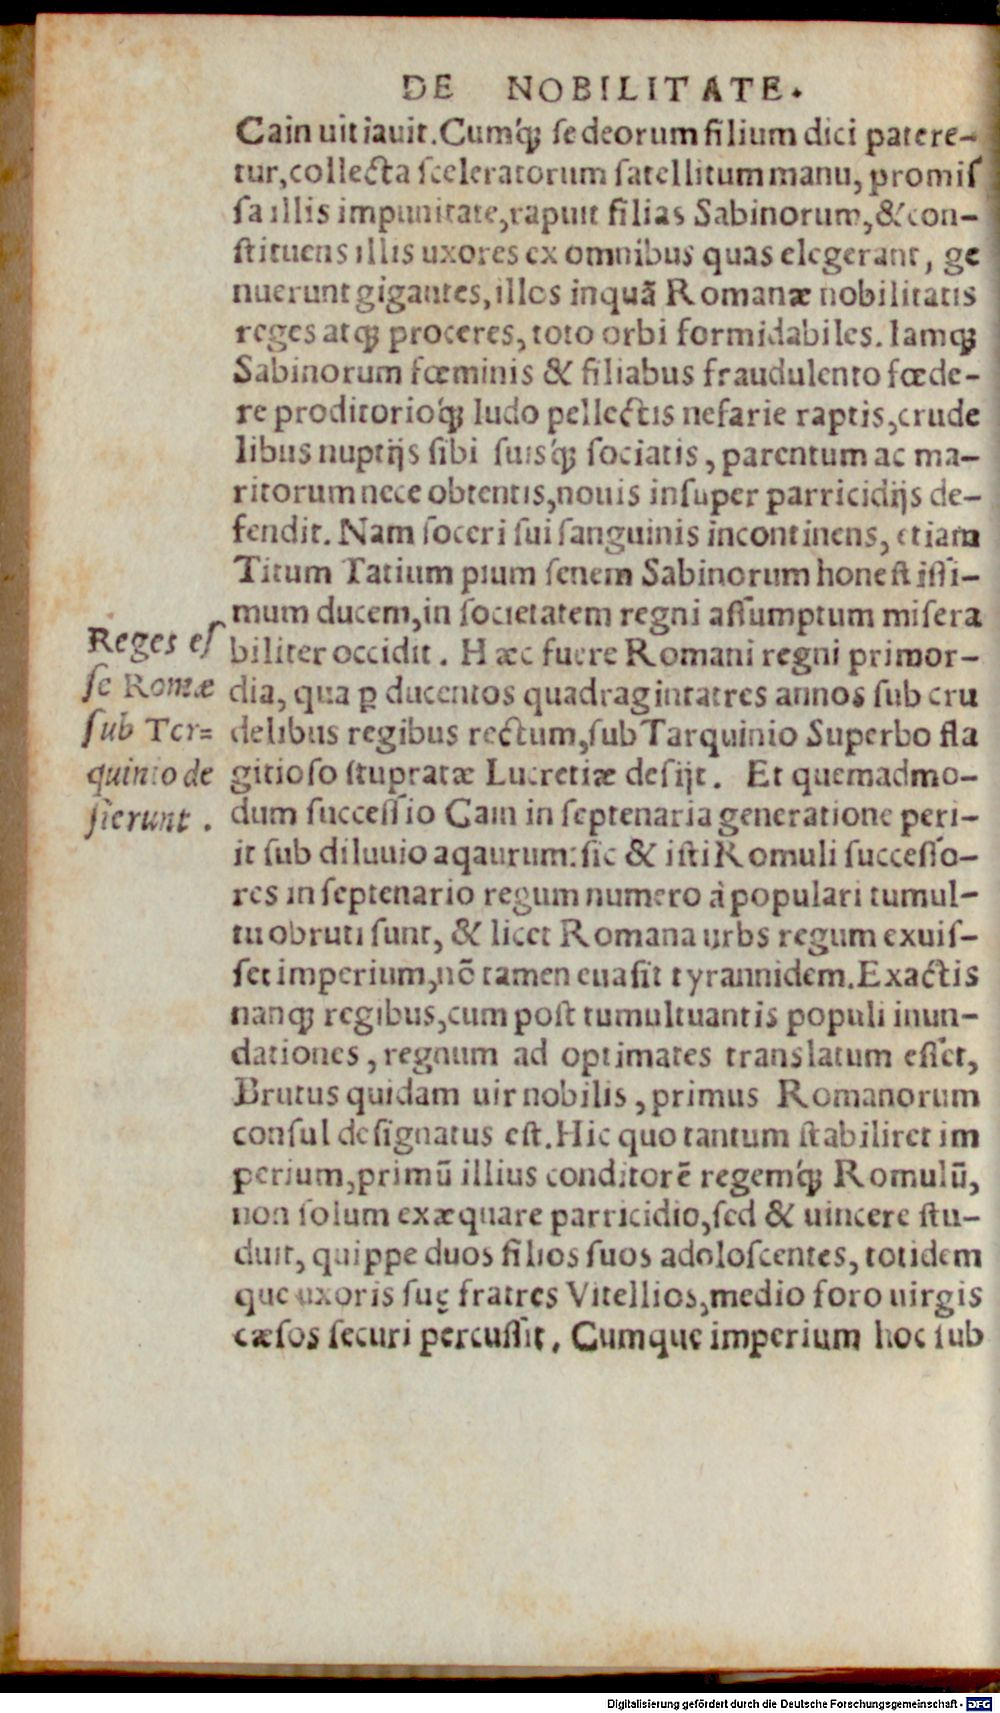 DE NOBILITATE.
Cain uitiauit. Cumq́ꝫ se deorum filium dici patere-
tur, collecta sceleratorum satellitum manu, promiſ
ſa illis impunitate, rapuit filias Sabinorum, & con-
ſtituens illis uxores ex omnibus quas elegerant, ge
nuerunt gigantes, illos inquã Romanæ nobilitatis
reges atqꝫ proceres, toto orbi formidabiles. Iamqꝫ
Sabinorum fœminis & filiabus fraudulento fœde-
re proditorioq́ꝫ ludo pellectis nefarie raptis, crude
libus nuptijs ſibi ſuisq́ꝫ ſociatis, parentum ac ma-
ritorum nece obtentis, nouis inſuper parricidijs de-
fendit. Nam ſoceri ſui ſanguinis incontinens, etiam
Titum Tatium pium ſenem Sabinorum honeſtiſſi-
mum ducem, in ſocietatem regni aſſumptum miſera
biliter occidit. Hæc fuere Romani regni primor-
dia, qua ꝑ ducentos quadragintatres annos ſub cru
delibus regibus rectum, ſub Tarquinio Superbo fla
gitioſo ſtupratæ Lucretiæ deſijt. Et quemadmo-
dum ſucceſſio Cain in ſeptenaria generatione peri-
it ſub diluuio aqaurum: ſic & iſti Romuli ſucceſſo-
res in ſeptenario regum numero à populari tumul-
tu obruti ſunt, & licet Romana urbs regum exuiſ-
ſet imperium, nõ tamen euaſit tyrannidem. Exactis
nanqꝫ regibus, cum poſt tumultuantis populi inun-
dationes, regnum ad optimates translatum eſſet,
Brutus quidam uir nobilis, primus Romanorum
conſul deſignatus eſt. Hic quo tantum ſtabiliret im
perium, primũ illius conditorẽ regemq́ꝫ Romulũ,
non ſolum exæquare parricidio, ſed & uincere ſtu-
duit, quippe duos filios ſuos adoloſcentes, totidem
que uxoris ſuę fratres Vitellios, medio foro uirgis
cæſos ſecuri percuſſit, Cumque imperium hoc ſub
Reges eſ
ſe Romæ
ſub Ter=
quinio de
ſierunt.
Digitalisierung gefördert durch die Deutsche Forschungsgemeinschaft - DFG